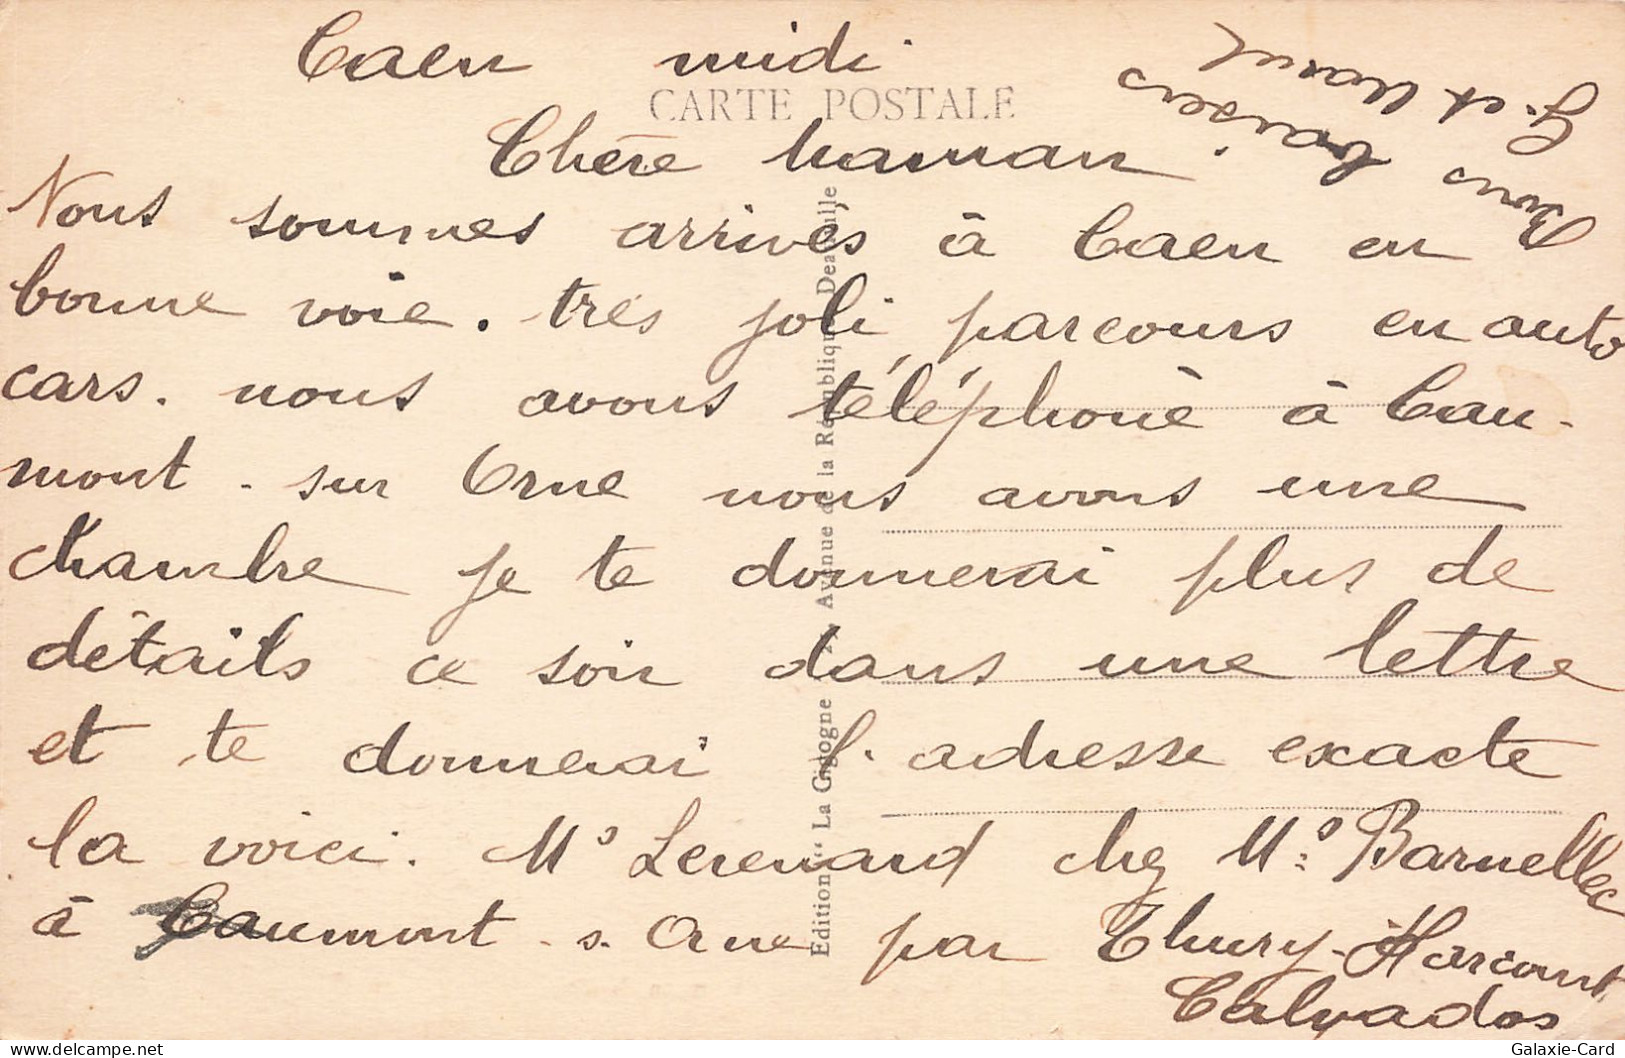 Caen midi
CARTE POSTALE
Chère maman
Nous sommes arrivés à Caen en
bonne voie. très joli parcours en auto
cars. nous avons téléphoné à Cau-
mont - sur Orne nous avons une
chambre je te donnerai plus de
détails ce soir dans une lettre
et te donnerai l'adresse exacte
la voici. Mr Lerenard chez Mr Barnellec
à Caumont - s. Orne par Thury-Harcourt
Calvados
Bons baisers
G. et
Edition "La Gigogne" Avenue de la République Deauville
Galaxie-Card